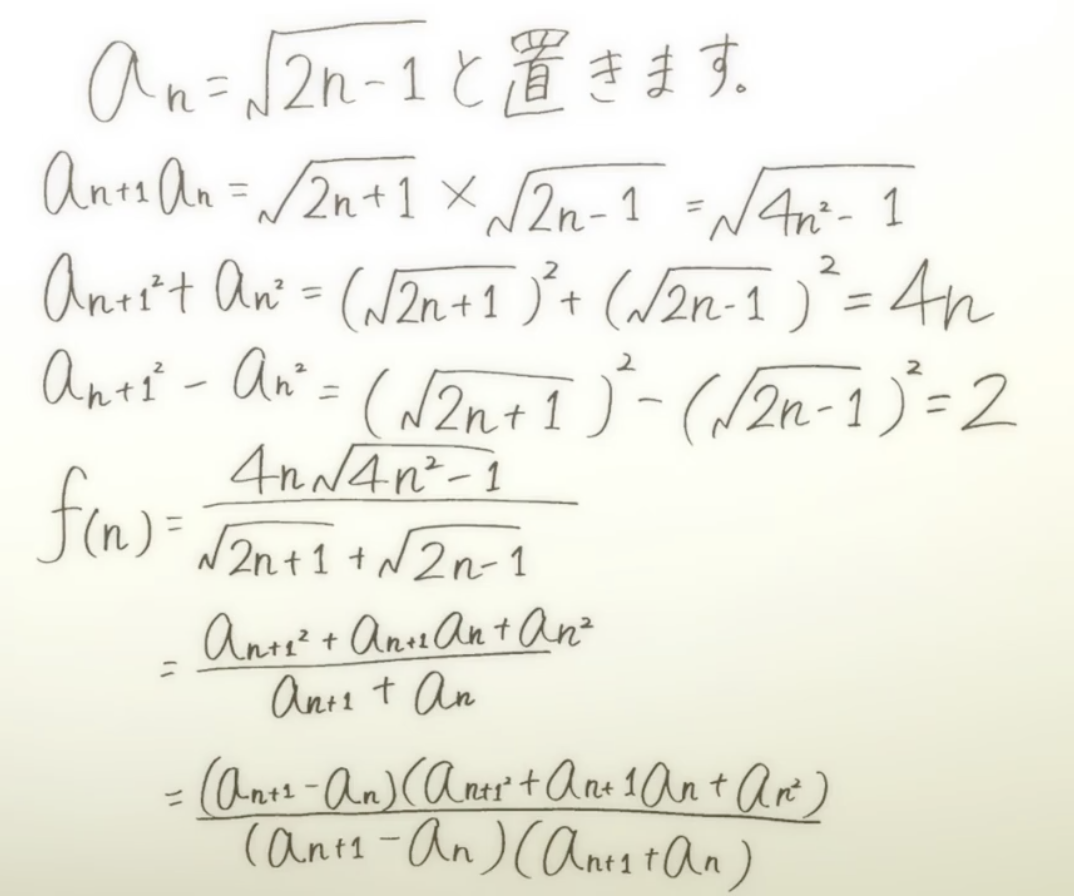 aₙ = √(2n-1) と置きます。
aₙ₊₁aₙ = √(2n+1) × √(2n-1) = √(4n²-1)
aₙ₊₁² + aₙ² = (√(2n+1))² + (√(2n-1))² = 4n
aₙ₊₁² - aₙ² = (√(2n+1))² - (√(2n-1))² = 2
f(n) = (4n√(4n²-1))/(√(2n+1) + √(2n-1))
= (aₙ₊₁² + aₙ₊₁aₙ + aₙ²)/(aₙ₊₁ + aₙ)
= ((aₙ₊₁ - aₙ)(aₙ₊₁² + aₙ₊₁aₙ + aₙ²))/((aₙ₊₁ - aₙ)(aₙ₊₁ + aₙ))